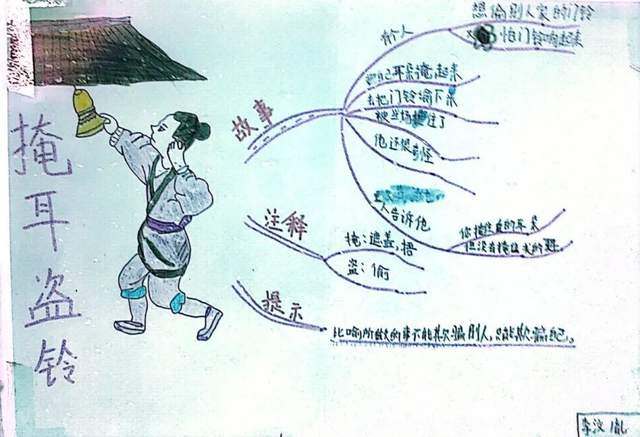 掩耳盗铃
故事
有人
想偷别人家的门铃
又怕门铃响起来
把自己耳朵掩起来
去把门铃偷下来
被当场捉住了
他还很奇怪
人告诉他
你掩住自己的耳朵
但没有掩住我的耳
注释
掩：遮盖，捂
盗：偷
提示
比喻所做的事不能欺骗别人，只能欺骗自己。